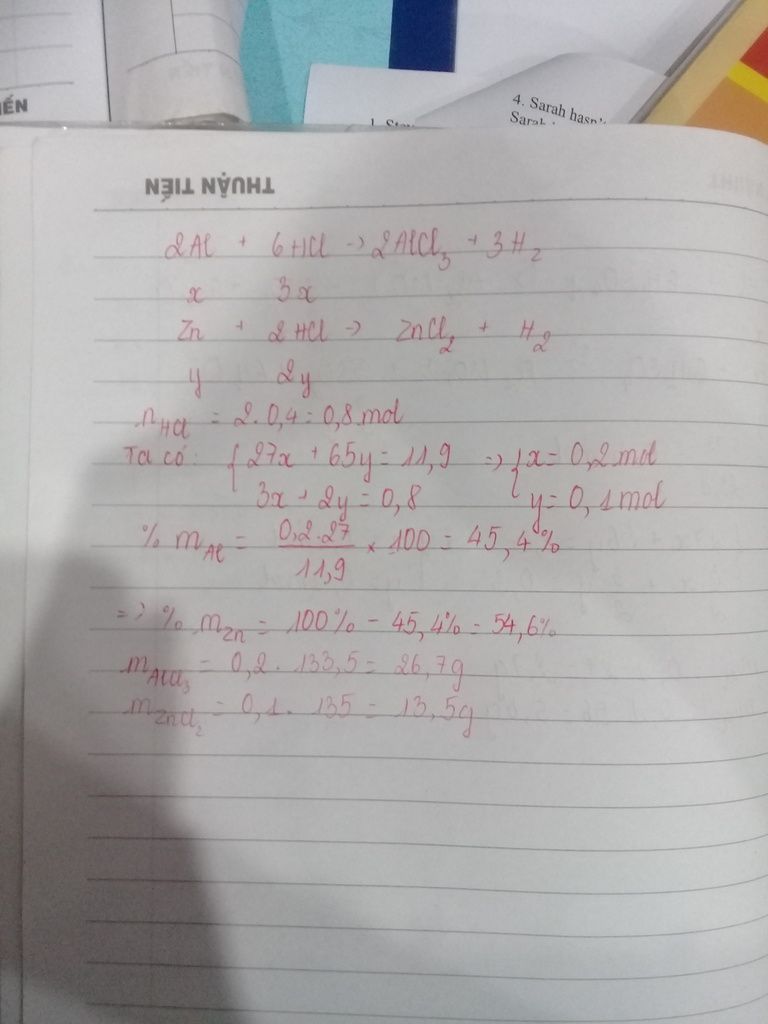 ẾN
4. Sarah hasn'
THUẬN TIẾN
2Al + 6HCl -> 2AlCl₃ + 3H₂
x 3x
Zn + 2HCl -> ZnCl₂ + H₂
y 2y
n_HCl = 2.0,4 = 0,8 mol
Ta có: { 27x + 65y = 11,9 => { x = 0,2 mol
3x + 2y = 0,8 y = 0,1 mol
% m_Al = 0,2.27 / 11,9 × 100 = 45,4%
=> % m_Zn = 100% - 45,4% = 54,6%
m_AlCl₃ = 0,2 . 133,5 = 26,7g
m_ZnCl₂ = 0,1 . 135 = 13,5g